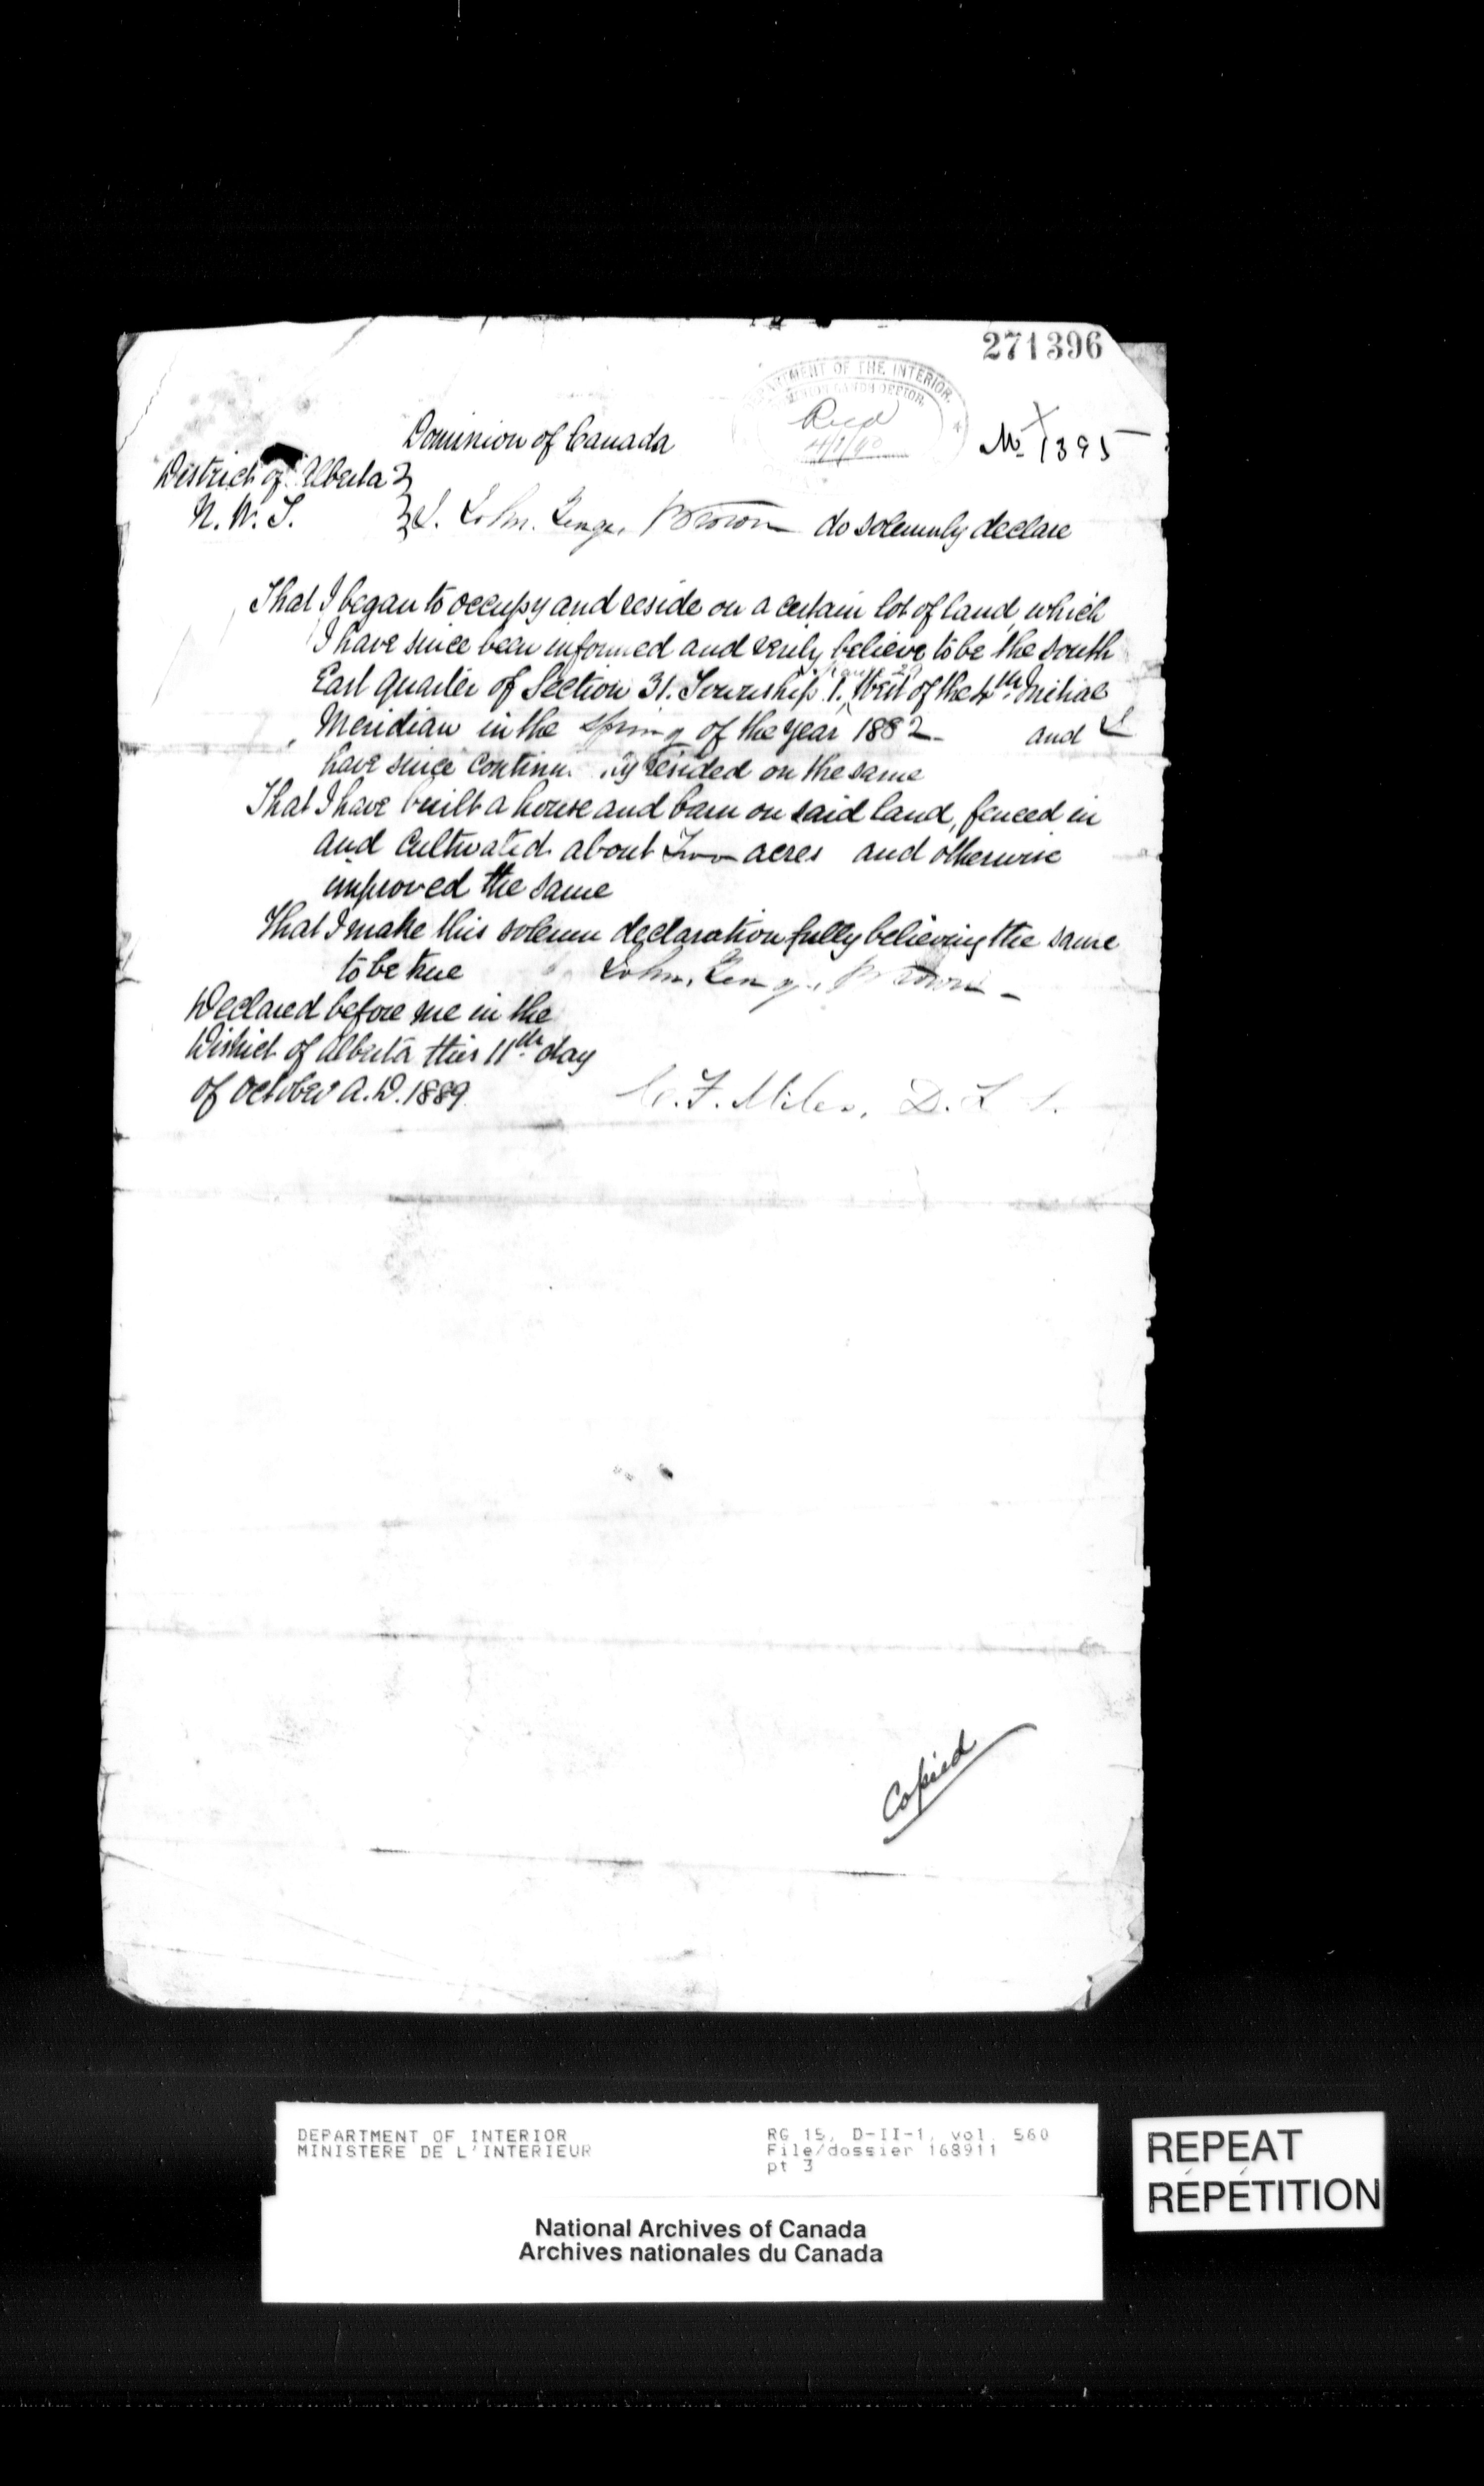 271396
DEPARTMENT OF THE INTERIOR.
Recd
4/1/90
No 1395
Dominion of Canada
District of Alberta
N. W. T.
I. John. Brown do solemnly declare
That I began to occupy and reside on a certain lot of land, which
I have since been informed and verily believe to be the south
Range 29
East quarter of Section 31. Township 1, West of the 4th Initial
Meridian in the spring of the year 1882 and I
have since resided on the same
That I have built a house and barn on said land, fenced in
and cultivated about Two acres and otherwise
improved the same
That I make this solemn declaration fully believing the same
to be true John. Brown
Declared before me in the
District of Alberta this 11th day
of October A.D. 1889
C. F. Miles, D. L. S.
Copied
DEPARTMENT OF INTERIOR
MINISTERE DE L'INTERIEUR
RG 15, D-II-1, vol. 560
File/dossier 168911
pt 3
National Archives of Canada
Archives nationales du Canada
REPEAT
RÉPÉTITION